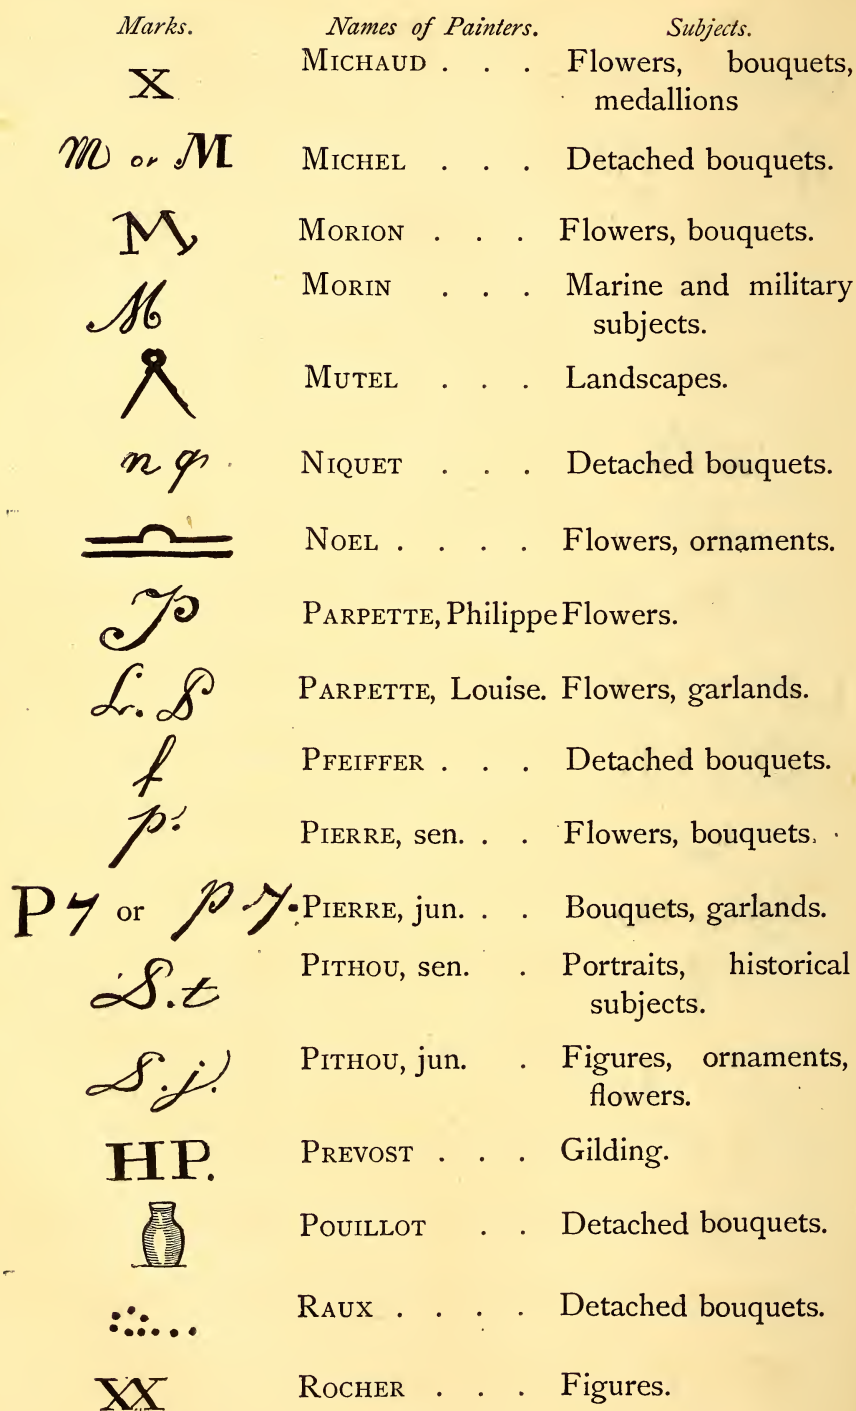 Marks. Names of Painters. Subjects.
X MICHAUD . . . Flowers, bouquets,
medallions
m or M MICHEL . . . Detached bouquets.
M MORION . . . Flowers, bouquets.
M MORIN . . . Marine and military
subjects.
MUTEL . . . Landscapes.
n q NIQUET . . . Detached bouquets.
NOEL . . . . Flowers, ornaments.
P PARPETTE, Philippe Flowers.
L. P PARPETTE, Louise. Flowers, garlands.
f PFEIFFER . . . Detached bouquets.
p. PIERRE, sen. . . Flowers, bouquets.
P7 or p.7. PIERRE, jun. . . Bouquets, garlands.
S.t PITHOU, sen. . Portraits, historical
subjects.
S.j. PITHOU, jun. . Figures, ornaments,
flowers.
HP. PREVOST . . . Gilding.
POUILLOT . . Detached bouquets.
RAUX . . . . Detached bouquets.
XX ROCHER . . . Figures.